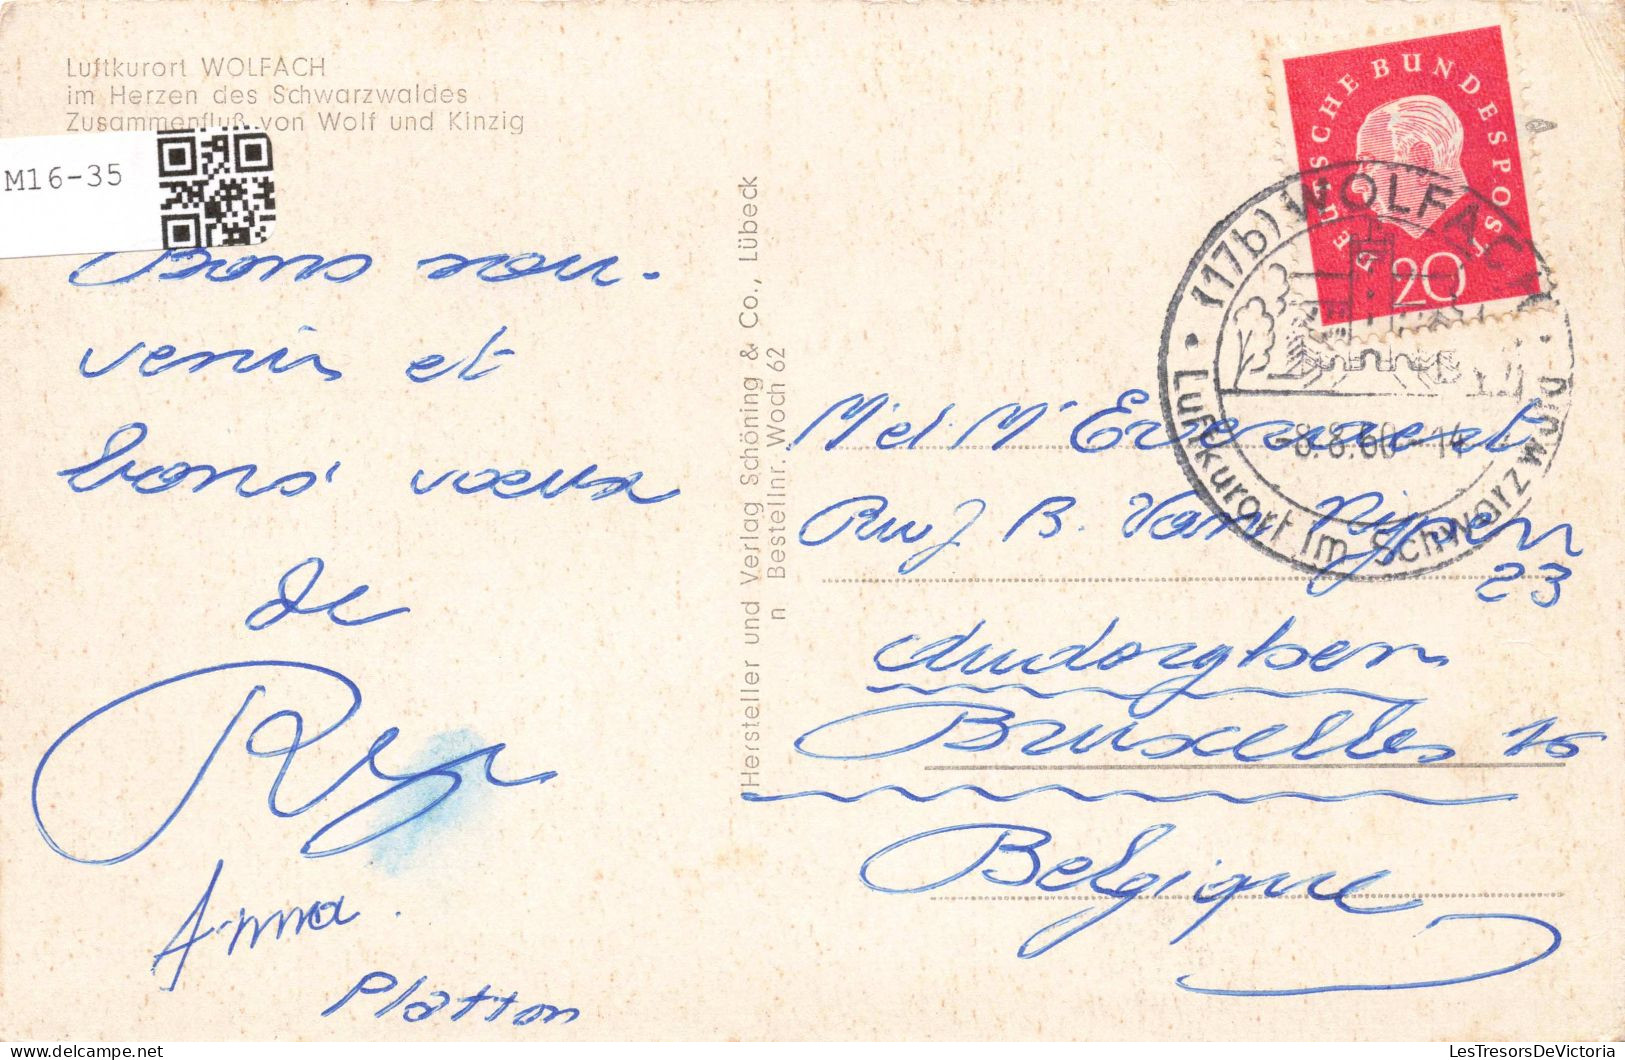 Luftkurort WOLFACH
im Herzen des Schwarzwaldes
Zusammenfluß von Wolf und Kinzig
M16-35
Bons sou-
venirs et
bons voeux
de
Anna.
Platton
Hersteller und Verlag Schöning & Co., Lübeck
n Bestellnr. Woch 62
DEUTSCHE BUNDESPOST
20
(17b) WOLFACH
-8.8.60-14
Luftkurort im Schwarzwald
M et M
B. Van
23
Auderghem
Bruxelles 16
Belgique
LesTresorsDeVictoria @ delcampe.net